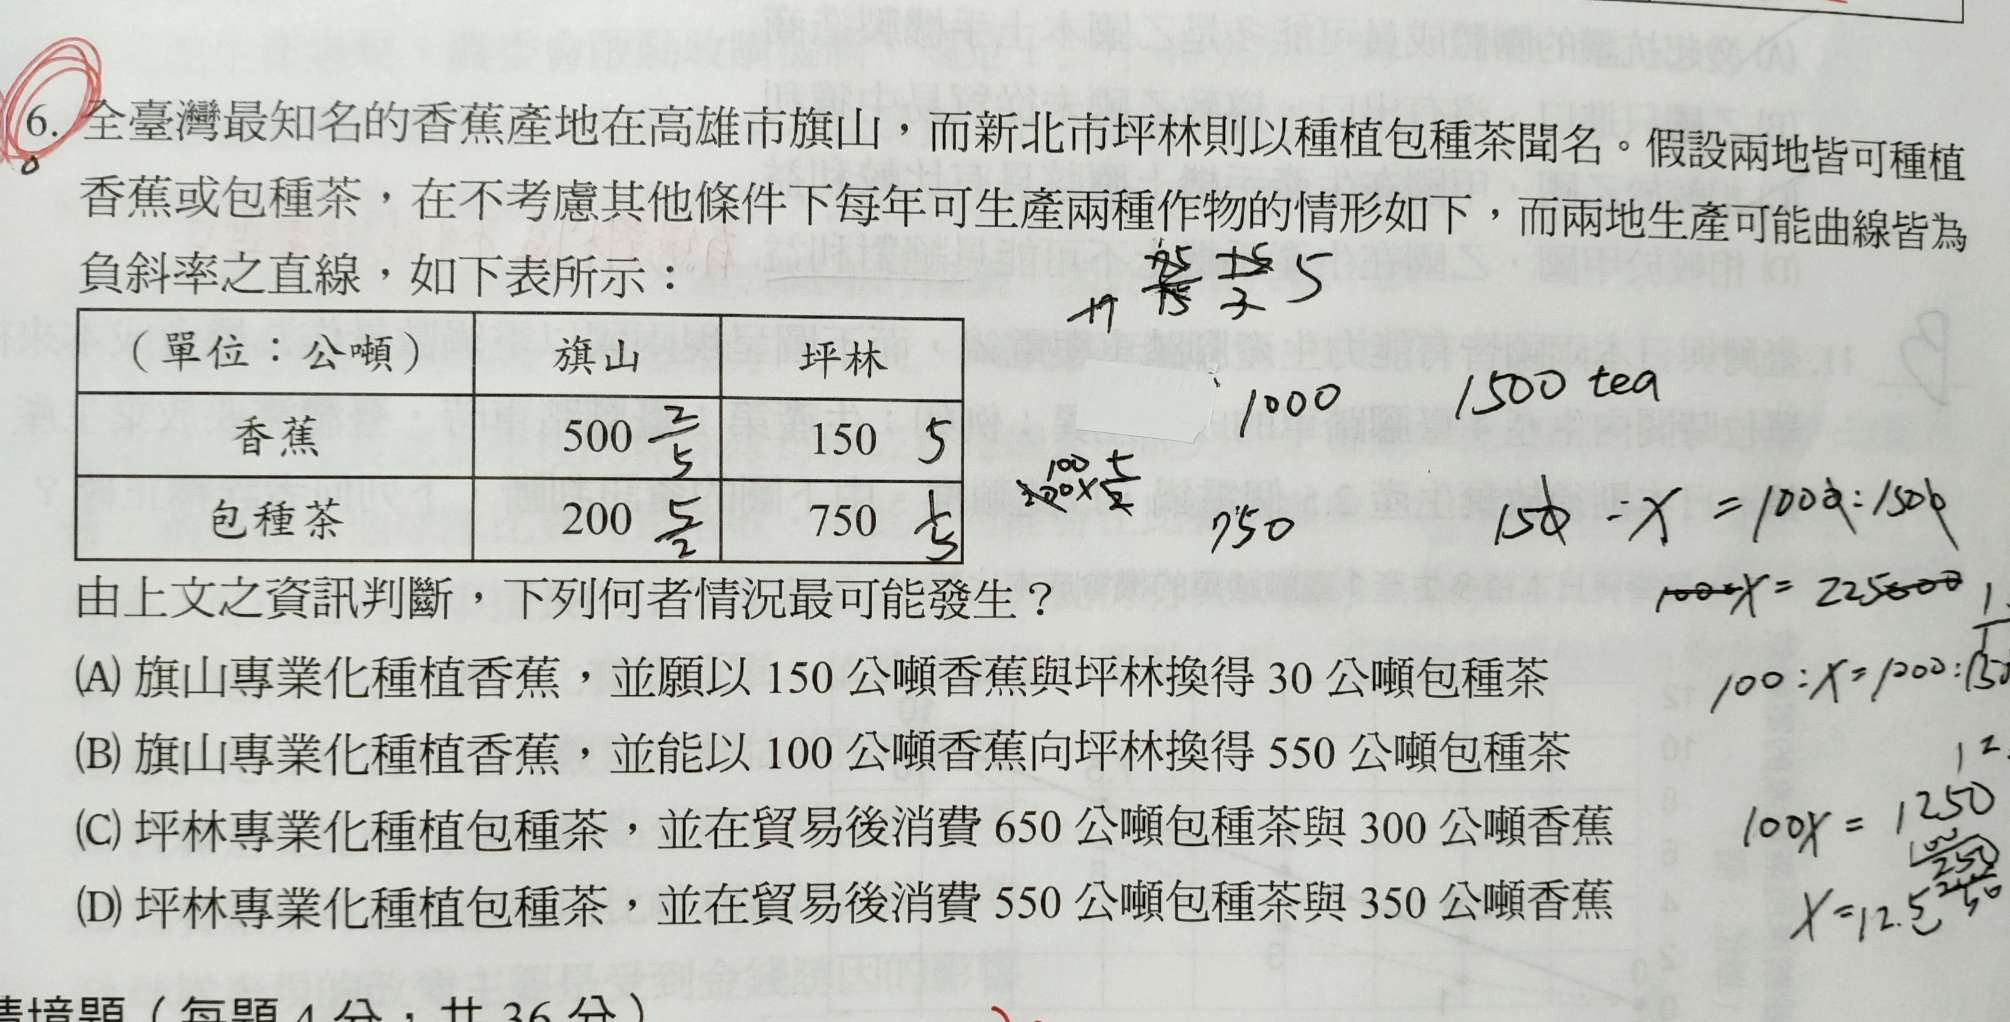 6. 全臺灣最知名的香蕉產地在高雄市旗山，而新北市坪林則以種植包種茶聞名。假設兩地皆可種植
香蕉或包種茶，在不考慮其他條件下每年可生產兩種作物的情形如下，而兩地生產可能曲線皆為
負斜率之直線，如下表所示：
5
（單位：公噸） 旗山 坪林
1000 1500 tea
香蕉 500 2/5 150 5
包種茶 200 5/2 750 1/5
750
由上文之資訊判斷，下列何者情況最可能發生？
(A) 旗山專業化種植香蕉，並願以 150 公噸香蕉與坪林換得 30 公噸包種茶
(B) 旗山專業化種植香蕉，並能以 100 公噸香蕉向坪林換得 550 公噸包種茶
(C) 坪林專業化種植包種茶，並在貿易後消費 650 公噸包種茶與 300 公噸香蕉
100X = 1250
(D) 坪林專業化種植包種茶，並在貿易後消費 550 公噸包種茶與 350 公噸香蕉
X=12.5
情境題（每題 4 分，共 36 分）